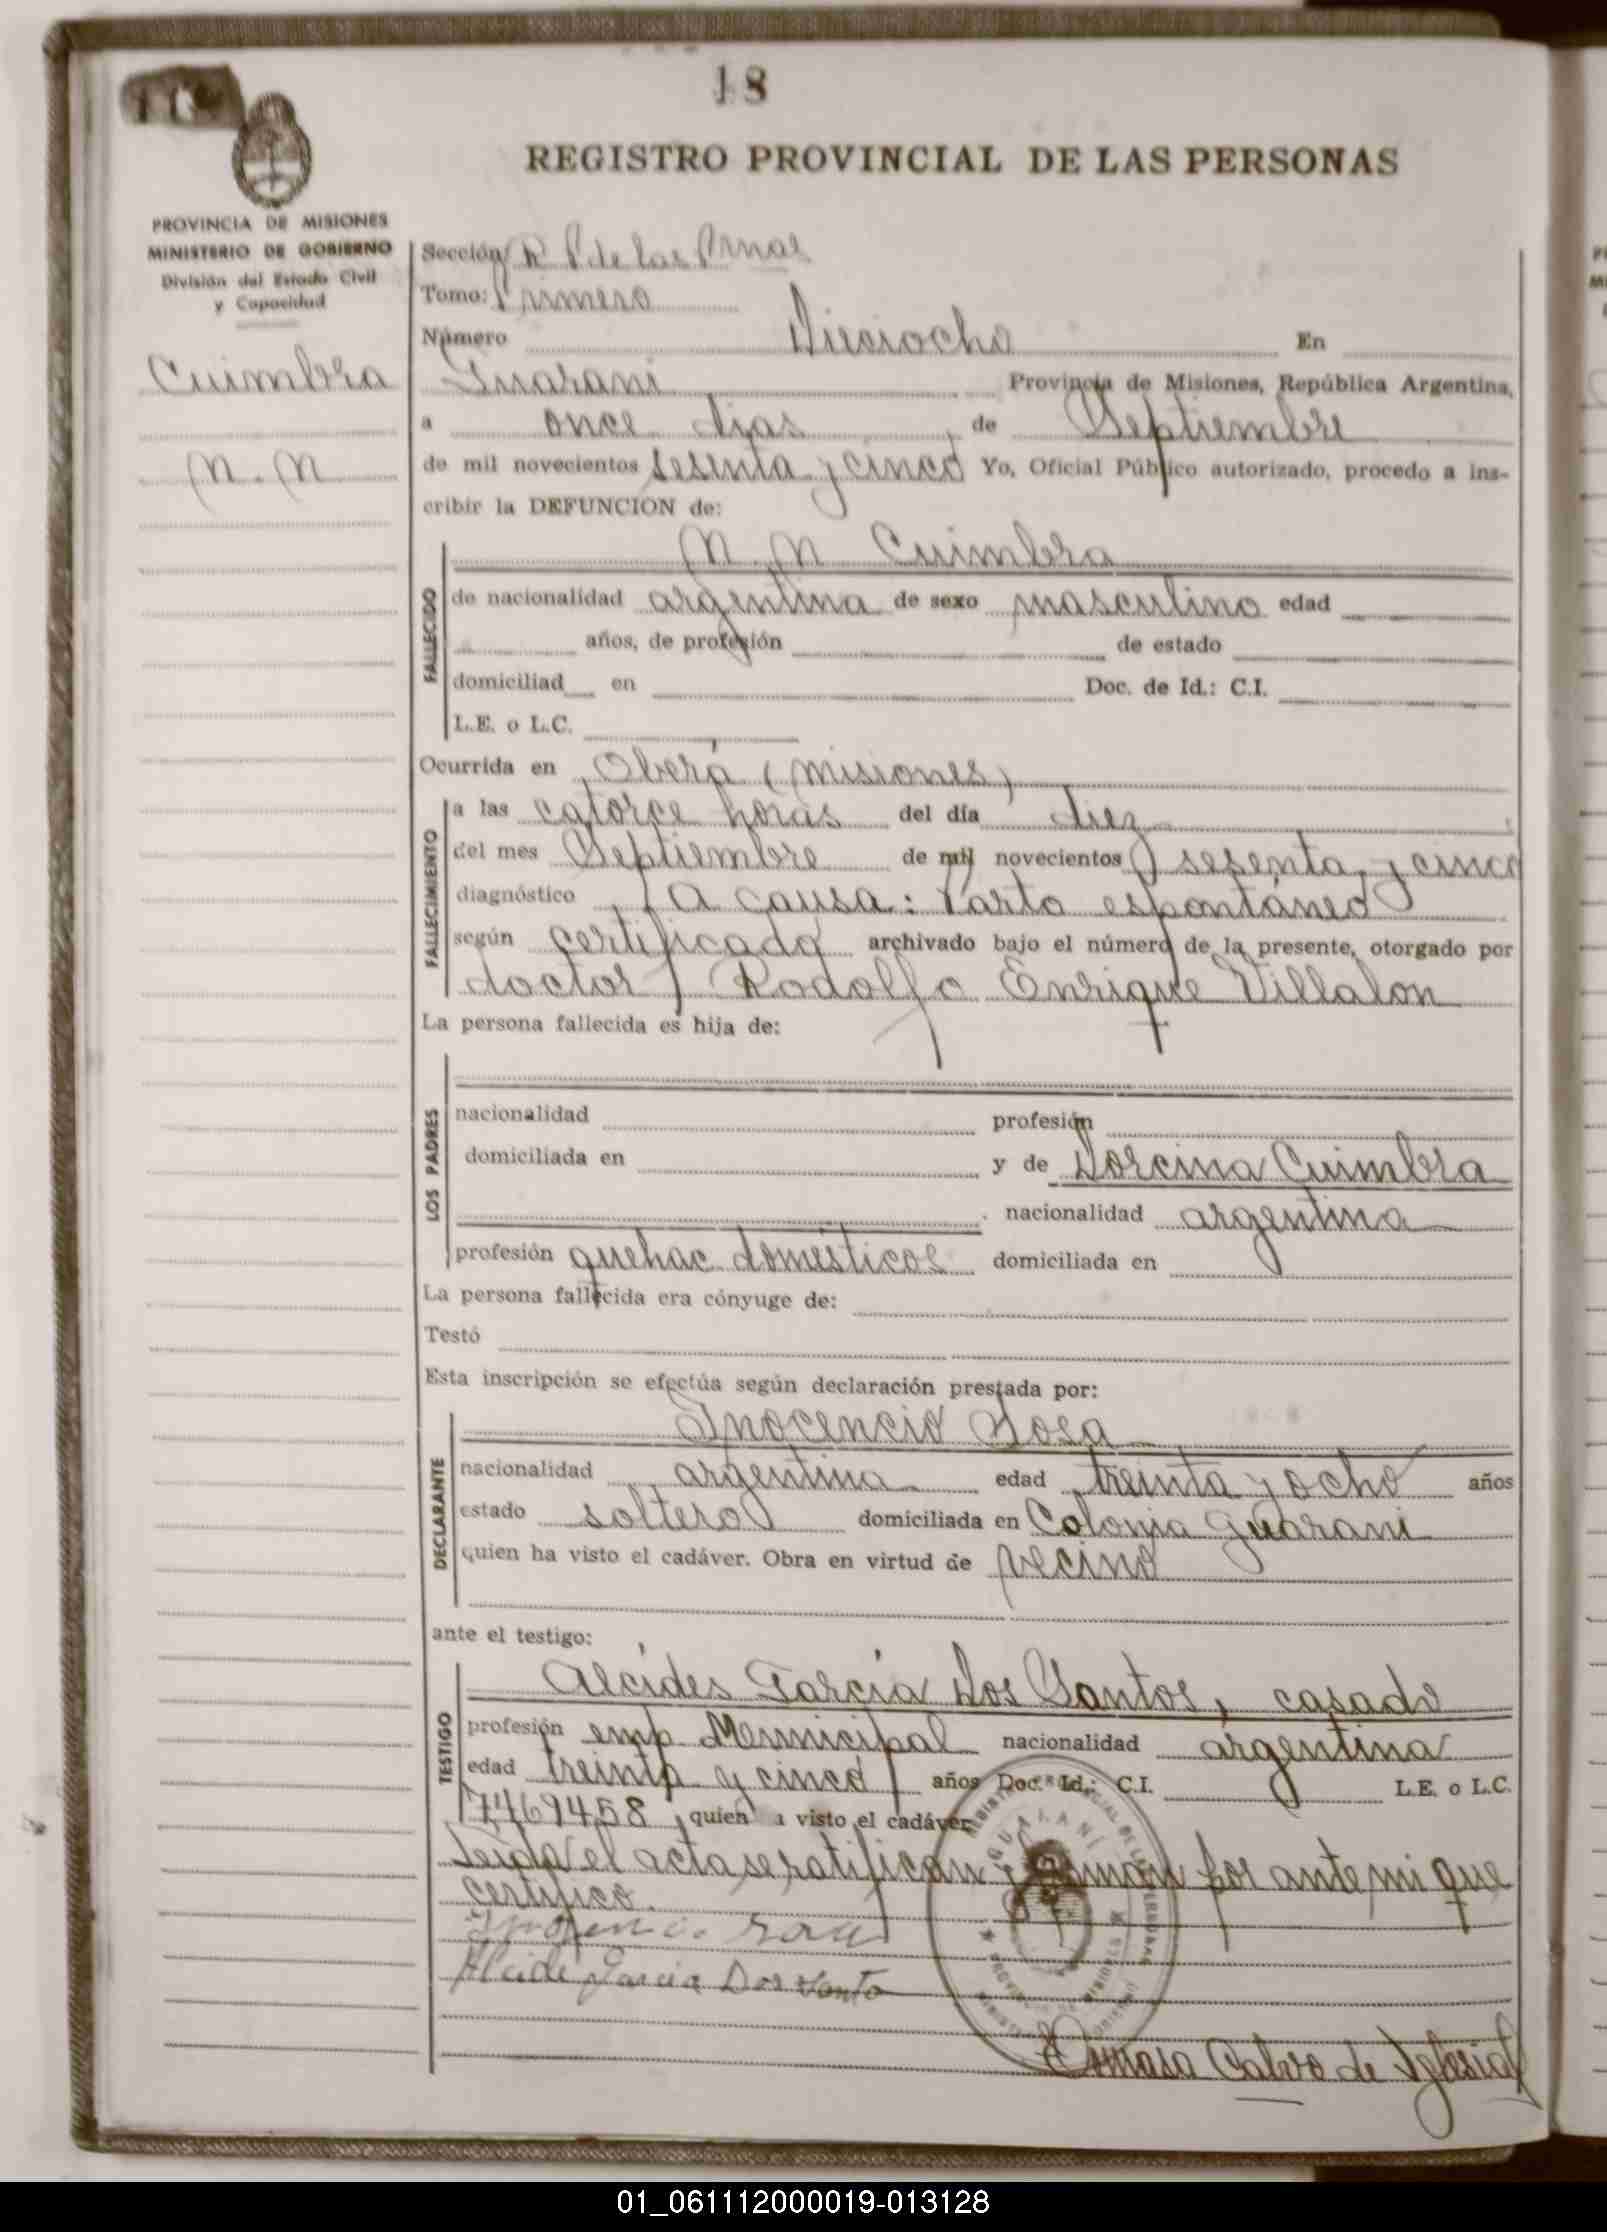 18
REGISTRO PROVINCIAL DE LAS PERSONAS
PROVINCIA DE MISIONES
MINISTERIO DE GOBIERNO
División del Estado Civil
y Capacidad
Cuimbra
N. N
Sección R P de las Prnas
Tomo: Primero
Número Dieciocho En
Guaraní Provincia de Misiones, República Argentina,
a once días de Septiembre
de mil novecientos sesenta y cinco Yo, Oficial Público autorizado, procedo a ins-
cribir la DEFUNCION de:
N. N Cuimbra
FALLECIDO
de nacionalidad argentina de sexo masculino edad
años, de profesión de estado
domiciliad en Doc. de Id.: C.I.
L.E. o L.C.
Ocurrida en Oberá (Misiones)
FALLECIMIENTO
a las catorce horas del día diez
del mes Septiembre de mil novecientos sesenta y cinco
diagnóstico A causa: Parto espontáneo
según certificado archivado bajo el número de la presente, otorgado por
doctor Rodolfo Enrique Villalon
La persona fallecida es hija de:
LOS PADRES
nacionalidad profesión
domiciliada en y de Dorcina Cuimbra
nacionalidad argentina
profesión quehac domésticos domiciliada en
La persona fallecida era cónyuge de:
Testó
Esta inscripción se efectúa según declaración prestada por:
Inocencio Sosa
DECLARANTE
nacionalidad argentina edad treinta y ocho años
estado soltero domiciliada en Colonia Guaraní
quien ha visto el cadáver. Obra en virtud de vecino
ante el testigo:
Alcídes García Dos Santos, casado
TESTIGO
profesión emp. Municipal nacionalidad argentina
edad treinta y cinco años Doc. Id.: C.I. L.E. o L.C.
7469458, quien a visto el cadáver
Leída el acta se ratifican y firman por ante mi que
certifico.
Alcide Garcia Dos Santo
Tomasa Calvo de Iglesias
01_061112000019-013128